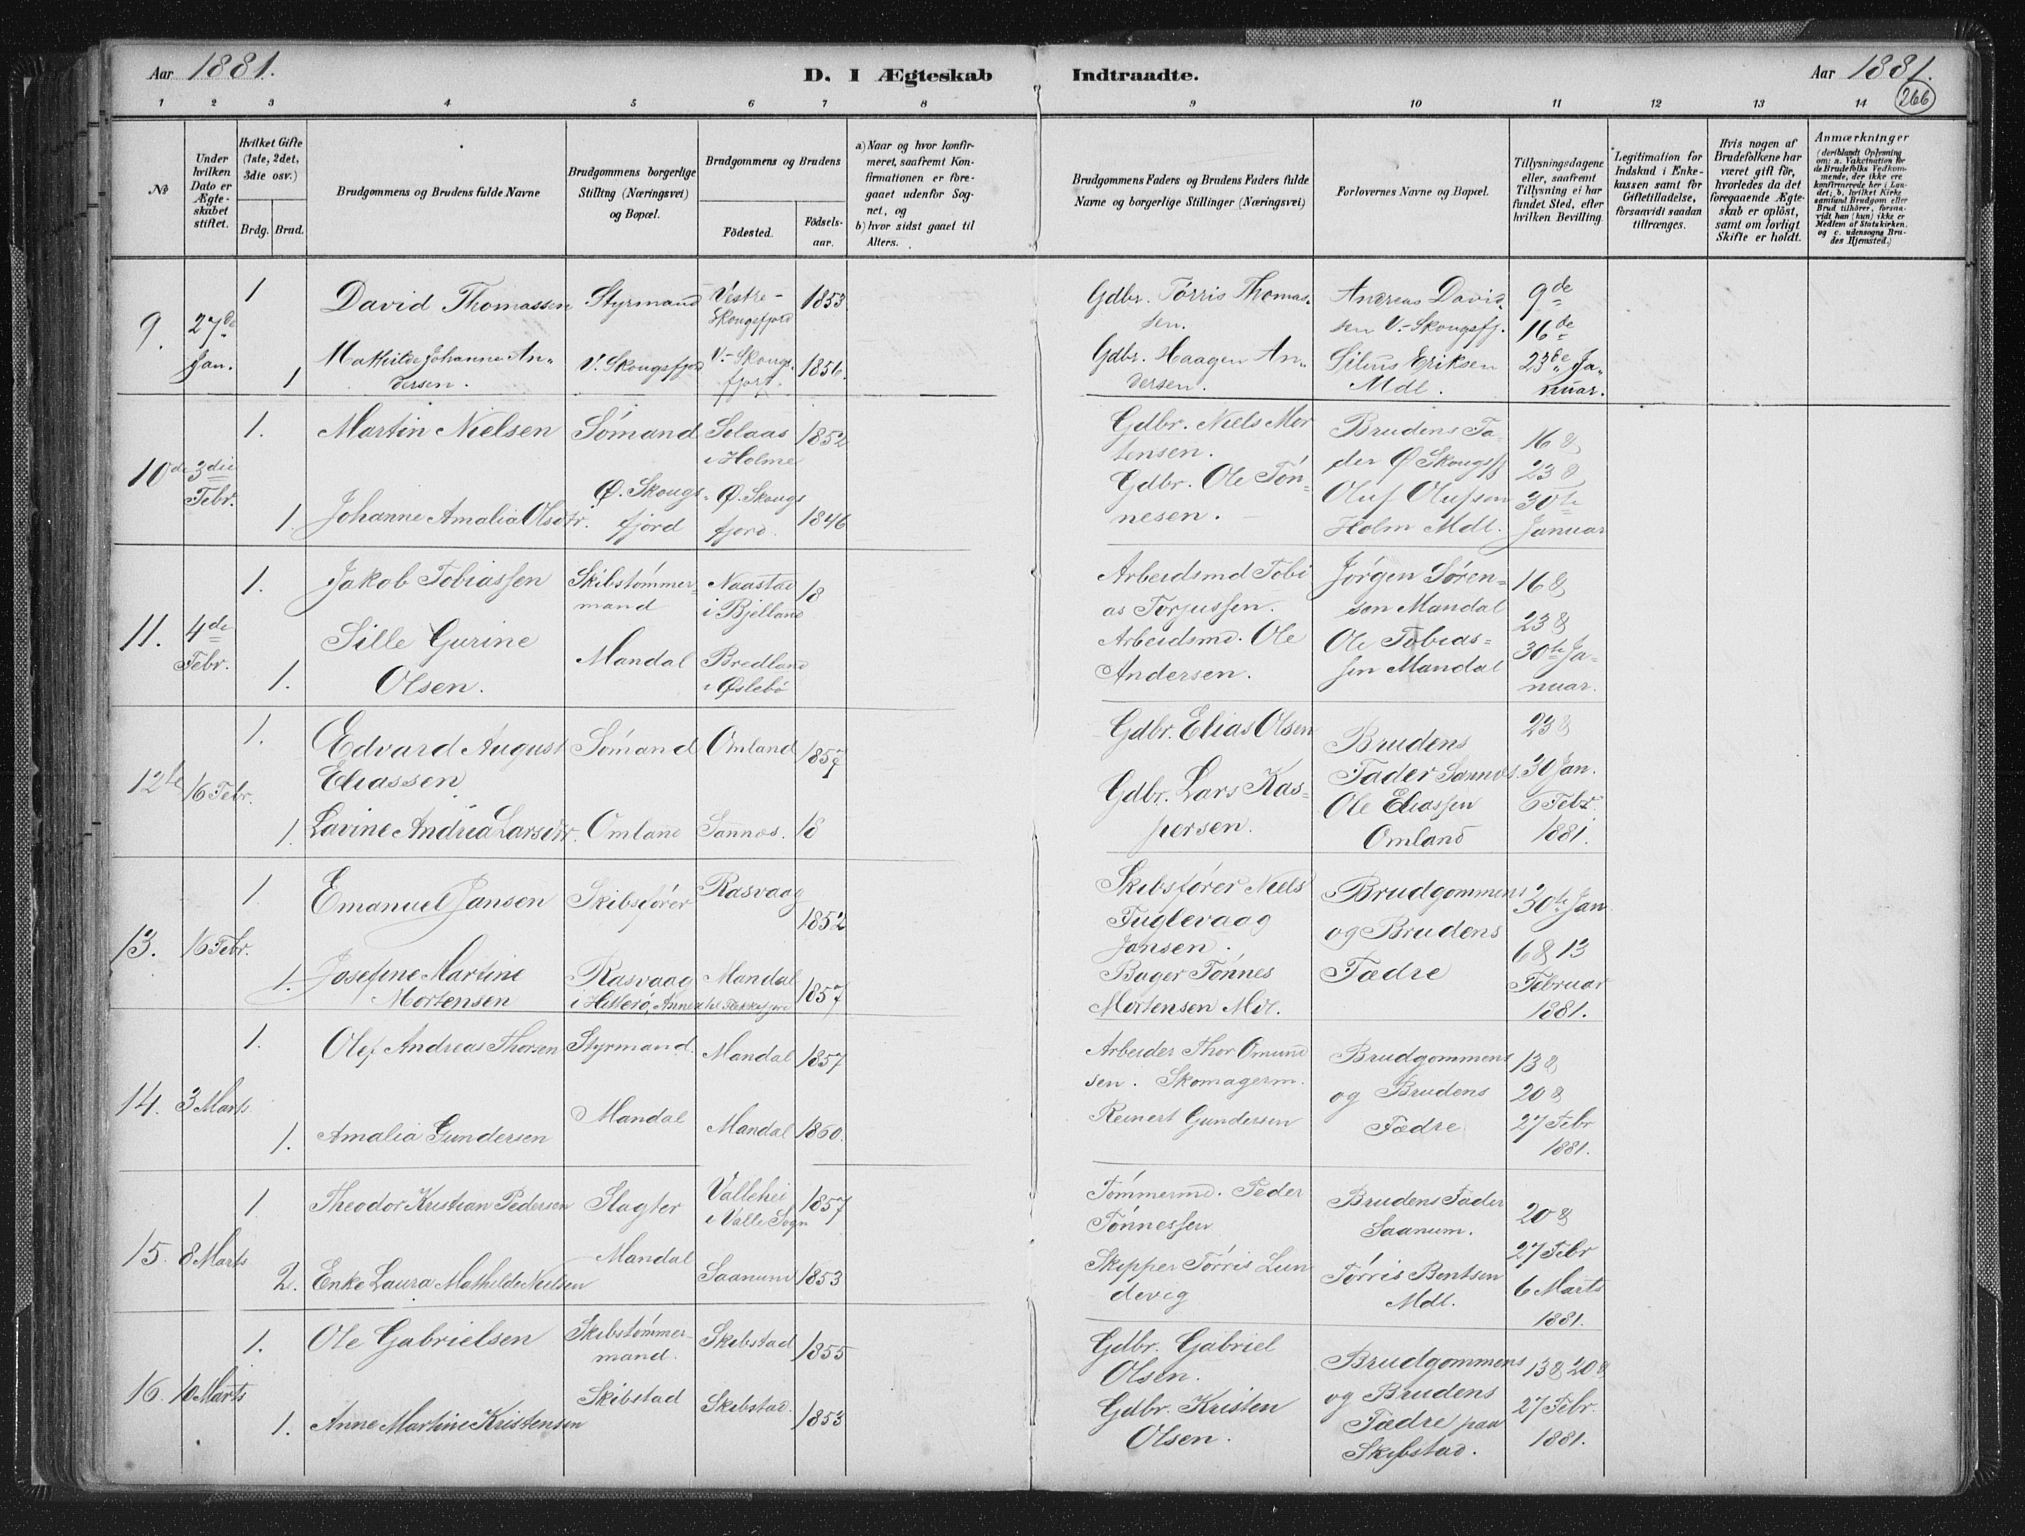 Aar 1881.
D. I Ægteskab Indtraadte.
Aar 1881.
266
1 2 3 4 5 6 7 8 9 10 11 12 13 14
No
Under hvilken Dato er Ægteskabet stiftet.
Hvilket Gifte (1ste, 2det, 3die osv.)
Brdg. Brud.
Brudgommens og Brudens fulde Navne
Brudgommens borgerlige Stilling (Næringsvei) og Bopæl.
Brudgommens og Brudens
Fødested.
Fødselsaar.
a) Naar og hvor konfirmeret, saafremt Konfirmationen er foregaaet udenfor Sognet, og
b) hvor sidst gaaet til Alters.
Brudgommens Faders og Brudens Faders fulde Navne og borgerlige Stillinger (Næringsvei)
Forlovernes Navne og Bopæl.
Tillysningsdagene eller, saafremt Tillysning ei har fundet Sted, efter hvilken Bevilling.
Legitimation for Indskud i Enkekassen samt for Giftetilladelse, forsaavidt saadan tiltrænges.
Hvis nogen af Brudefolkene har været gift før, hvorledes da det foregaaende Ægteskab er opløst, samt om lovligt Skifte er holdt.
Anmærkninger
(deriblandt Oplysning om: a. Vakcination for de Brudefolks Vedkommende, der ikke ere konfirmerede her i Landet; b. hvilket Kirkesamfund Brudgom eller Brud tilhører, forsaavidt han (hun) ikke er Medlem af Statskirken, og c. udensogns Brudes Hjemsted.)
9. 27de Jan.
1 David Thomassen Styrmand Vestre-Skougsfjord 1853
1 Mathilde Johanne Andersen. V. Skougsfjord V.-Skougsfjort. 1856.
Gdbr. Tørris Thomassen.
Gdbr. Haagen Andersen.
Andreas Davidsen V.-Skougsfj.
Silius Eriksen Mdl.
9de 16de 23de Januar.
10de 3die Febr.
1. Martin Nielsen Sömand Solaas i Holme 1852
1. Johanne Amalia Olsdtr. Ø. Skougsfjord Ø. Skougsfjord. 1846
Gdbr. Niels Mortensen.
Gdbr. Ole Tönnesen.
Brudens Fader Ø Skougsfj
Oluf Olufsen Holm Mdl.
16 & 23 & 30te Januar
11. 4de Febr.
1. Jakob Tobiassen Skibstømmermand Naastad i Bjelland 18
1. Sille Gurine Olsen. Mandal Bredland i Øslebö
Arbeidsmd Tobias Torjussen.
Arbeidsmd. Ole Andersen.
Jørgen Sørensen Mandal
Ole Tobiassen Mandal
16 & 23 & 30te Januar.
12te 16 Febr.
1. Edvard August Eliassen Sömand Omland 1857
1. Lavine Andrea Larsdtr. Omland Sannos. 18
Gdbr. Elias Olsen
Gdbr. Lars Kaspersen.
Brudens Fader Sannos.
Ole Eliassen Omland
23 & 30 Jan. 6 Febr. 1881.
13. 16 Febr.
1. Emanuel Jansen Skibsfører Rasvaag 1852
1. Josefine Martine Mortensen Rasvaag i Hitterö, Annex til Flekkefjord Mandal 1857
Skibsfører Niels Fuglevaag Jansen.
Bager Tönnes Mortensen Mdl.
Brudgommens og Brudens Fædre
30te Jan 6 & 13 Februar 1881.
14. 3 Marts
1. Olef Andreas Thorsen Styrmand. Mandal 1857
1. Amalia Gundersen Mandal Mandal 1860.
Arbeider Thor Omundsen. Skomagerm. Reinert Gundersen
Brudgommens og Brudens Fædre
13 & 20 & 27 Febr 1881.
15. 8 Marts
1 Theodor Kristian Pedersen Slagter Vallehei i Valle Sogn 1857
2. Enke Laura Mathilde Nielsen Mandal Saanum 1853
Tömmermd. Peder Tönnessen
Skipper Tørris Lundevig
Brudens Fader Saanum.
Tørris Bentsen Mdl.
20 & 27 Febr 6 Marts 1881.
16. 10 Marts
1. Ole Gabrielsen Skibstömmermand. Skibstad 1855
1. Anne Martine Kristensen Skibstad Skibstad. 1853
Gdbr. Gabriel Olsen.
Gdbr. Kristen Olsen.
Brudgommens og Brudens Fædre paa Skibstad.
13 & 20 & 27 Febr. 1881.